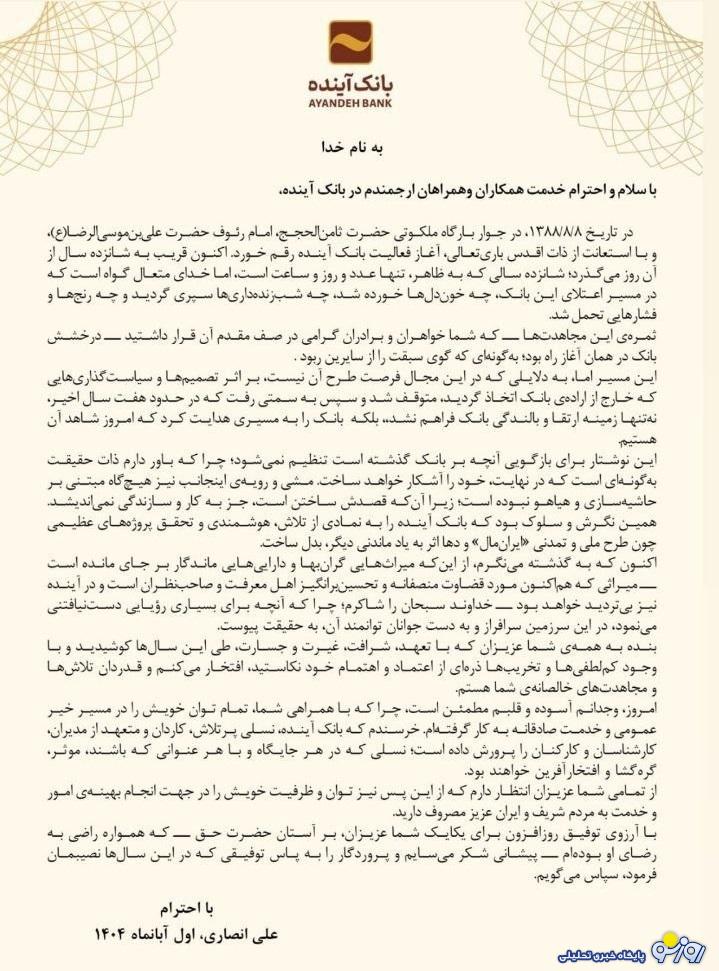 بانک آینده
AYANDEH BANK
به نام خدا
با سلام و احترام خدمت همکاران وهمراهان ارجمندم در بانک آینده،
در تاریخ ۱۳۸۸/۸/۸، در جوار بارگاه ملکوتی حضرت ثامن‌الحجج، امام رئوف حضرت علی‌بن‌موسی‌الرضا(ع)،
و با استعانت از ذات اقدس باری‌تعالی، آغاز فعالیت بانک آینده رقم خورد. اکنون قریب به شانزده سال از
آن روز می‌گذرد؛ شانزده سالی که به ظاهر، تنها عدد و روز و ساعت است، اما خدای متعال گواه است که
در مسیر اعتلای این بانک، چه خون‌دل‌ها خورده شد، چه شب‌زنده‌داری‌ها سپری گردید و چه رنج‌ها و
فشارهایی تحمل شد.
ثمره‌ی این مجاهدت‌ها ـــ که شما خواهران و برادران گرامی در صف مقدم آن قرار داشتید ـــ درخشش
بانک در همان آغاز راه بود؛ به‌گونه‌ای که گوی سبقت را از سایرین ربود .
این مسیر اما، به دلایلی که در این مجال فرصت طرح آن نیست، بر اثر تصمیم‌ها و سیاست‌گذاری‌هایی
که خارج از اراده‌ی بانک اتخاذ گردید، متوقف شد و سپس به سمتی رفت که در حدود هفت سال اخیر،
نه‌تنها زمینه ارتقا و بالندگی بانک فراهم نشد،، بلکه بانک را به مسیری هدایت کرد که امروز شاهد آن
هستیم.
این نوشتار برای بازگویی آنچه بر بانک گذشته است تنظیم نمی‌شود؛ چرا که باور دارم ذات حقیقت
به‌گونه‌ای است که در نهایت، خود را آشکار خواهد ساخت. مشی و رویه‌ی اینجانب نیز هیچ‌گاه مبتنی بر
حاشیه‌سازی و هیاهو نبوده است؛ زیرا آن‌که قصدش ساختن است، جز به کار و سازندگی نمی‌اندیشد.
همین نگرش و سلوک بود که بانک آینده را به نمادی از تلاش، هوشمندی و تحقق پروژه‌های عظیمی
چون طرح ملی و تمدنی «ایران‌مال» و دها اثر به یاد ماندنی دیگر، بدل ساخت.
اکنون که به گذشته می‌نگرم، از این‌که میراث‌هایی گران‌بها و دارایی‌هایی ماندگار بر جای مانده است
ـــ میراثی که هم‌اکنون مورد قضاوت منصفانه و تحسین‌برانگیز اهل معرفت و صاحب‌نظران است و در آینده
نیز بی‌تردید خواهد بود ـــ خداوند سبحان را شاکرم؛ چرا که آنچه برای بسیاری رؤیایی دست‌نیافتنی
می‌نمود، در این سرزمین سرافراز و به دست جوانان توانمند آن، به حقیقت پیوست.
بنده به همه‌ی شما عزیزان که با تعهد، شرافت، غیرت و جسارت، طی این سال‌ها کوشیدید و با
وجود کم‌لطفی‌ها و تخریب‌ها ذره‌ای از اعتماد و اهتمام خود نکاستید، افتخار می‌کنم و قدردان تلاش‌ها
و مجاهدت‌های خالصانه‌ی شما هستم.
امروز، وجدانم آسوده و قلبم مطمئن است، چرا که با همراهی شما، تمام توان خویش را در مسیر خیر
عمومی و خدمت صادقانه به کار گرفته‌ام. خرسندم که بانک آینده، نسلی پرتلاش، کاردان و متعهد از مدیران،
کارشناسان و کارکنان را پرورش داده است؛ نسلی که در هر جایگاه و با هر عنوانی که باشند، موثر،
گره‌گشا و افتخارآفرین خواهند بود.
از تمامی شما عزیزان انتظار دارم که از این پس نیز توان و ظرفیت خویش را در جهت انجام بهینه‌ی امور
و خدمت به مردم شریف و ایران عزیز مصروف دارید.
با آرزوی توفیق روزافزون برای یکایک شما عزیزان، بر آستان حضرت حق ـــ که همواره راضی به
رضای او بوده‌ام ـــ پیشانی شکر می‌سایم و پروردگار را به پاس توفیقی که در این سال‌ها نصیبمان
فرمود، سپاس می‌گویم.
با احترام
علی انصاری، اول آبانماه ۱۴۰۴
روزنو
پایگاه خبری تحلیلی